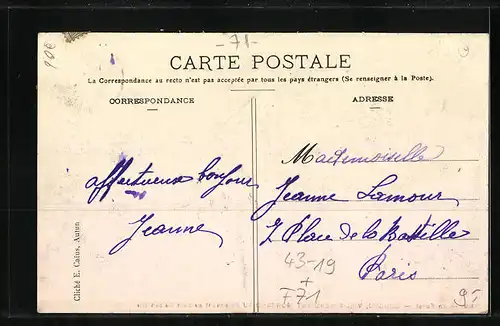 -71-
CARTE POSTALE
La Correspondance au recto n'est pas acceptée par tous les pays étrangers (Se renseigner à la Poste).
CORRESPONDANCE
ADRESSE
affectueux bonjour
Jeanne
Mademoiselle
Jeanne Lamour
7 Place de la Bastille
Paris
43-19
+
F71
9-
Cliché E. Calus, Autun